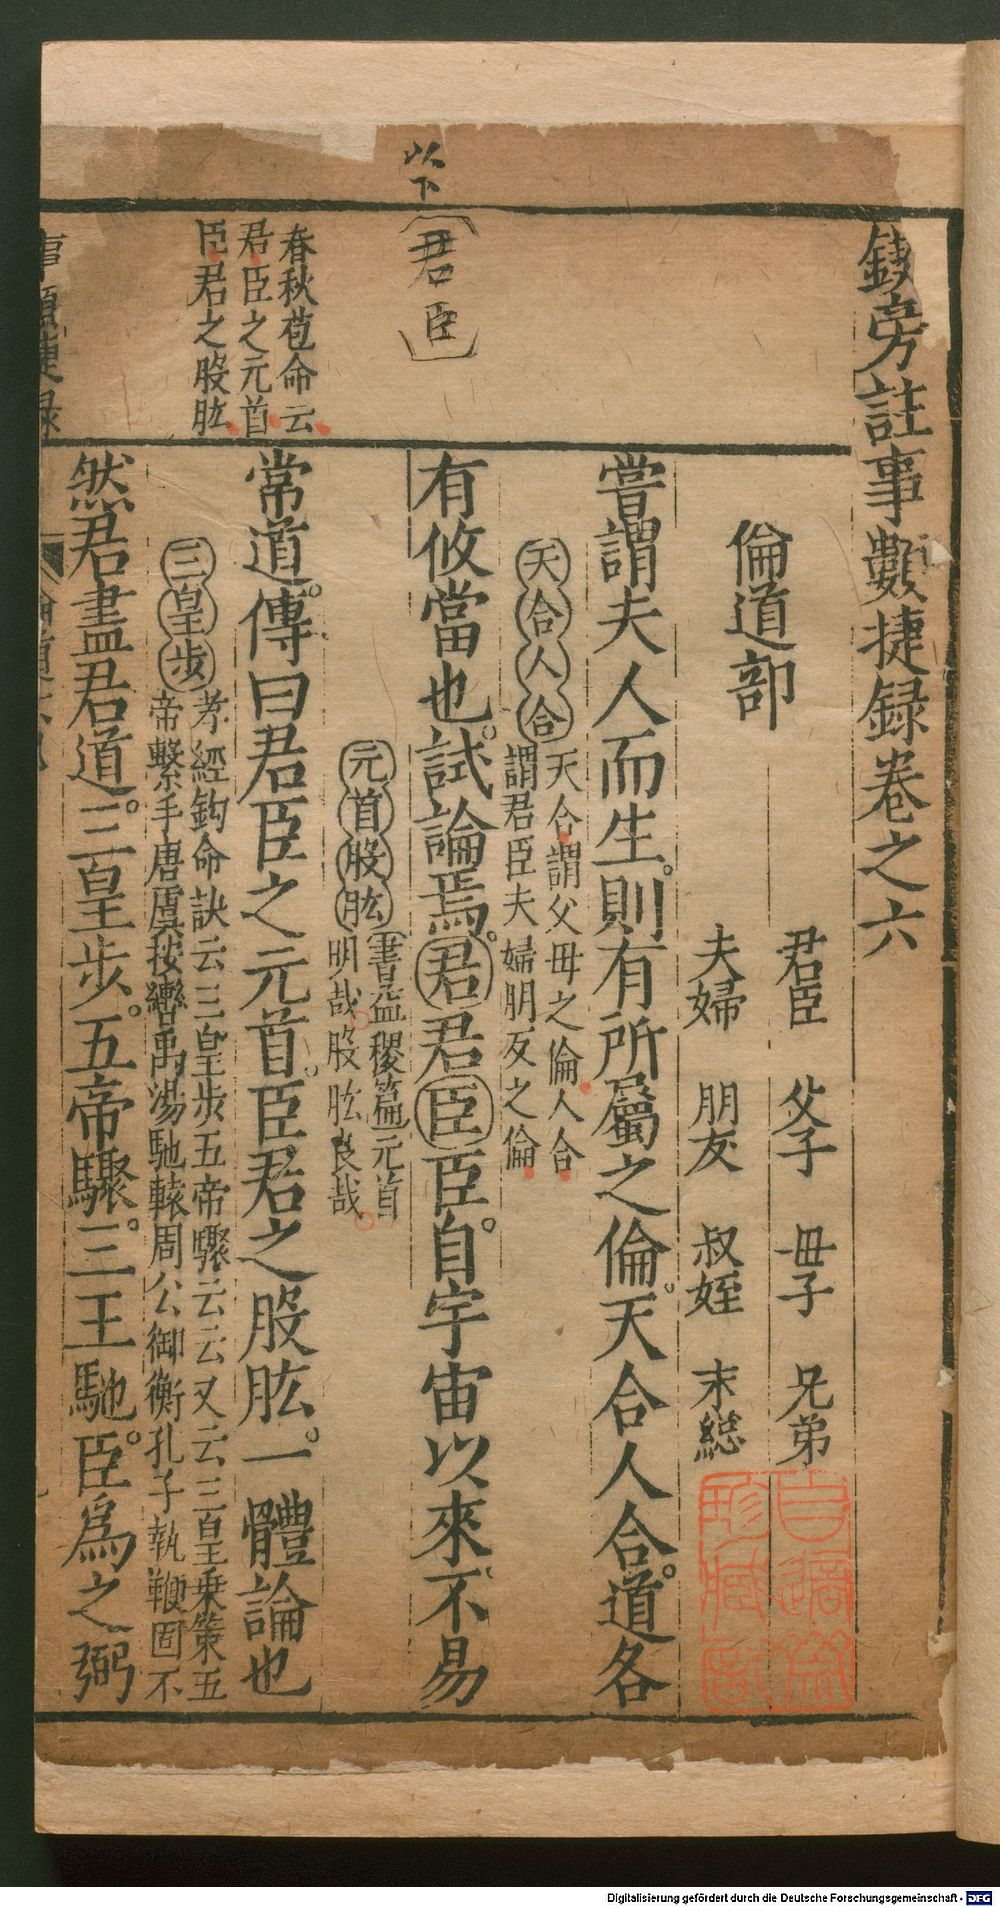 鋟旁註事類捷録卷之六
倫道部
君臣 父子 母子 兄弟
夫婦 朋友 叔姪 末總
嘗謂夫人而生則有所屬之倫天合人合道各
天合人合 天合謂父母之倫人合
謂君臣夫婦朋友之倫
以下
君臣
有攸當也試論焉君君臣臣自宇宙以來不易
元首股肱 書益稷篇元首
明哉股肱良哉
春秋苞命云
君臣之元首
臣君之股肱
常道傳曰君臣之元首臣君之股肱一體論也
三皇步 孝經鈎命訣云三皇步五帝驟云云又云三皇乗策五
帝繫手唐虞按轡禹湯馳轅周公御衡孔子執鞭固不
然君盡君道三皇步五帝驟三王馳臣爲之弼
事類捷録
Digitalisierung gefördert durch die Deutsche Forschungsgemeinschaft - DFG